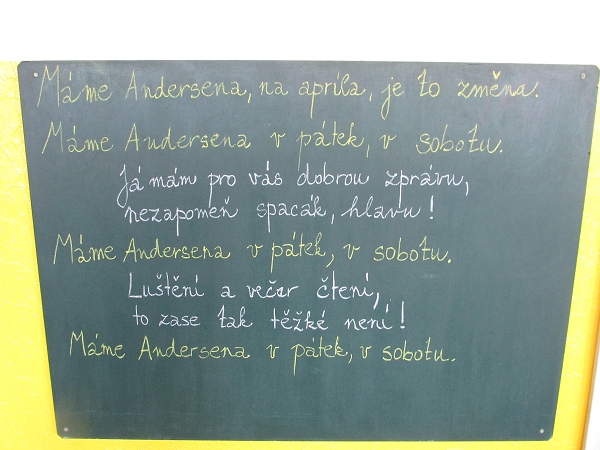 Máme Andersena, na apríla, je to změna.
Máme Andersena v pátek, v sobotu.
Já mám pro vás dobrou zprávu,
nezapomeň spacák, hlavu!
Máme Andersena v pátek, v sobotu.
Luštění a večer čtení,
to zase tak těžké není!
Máme Andersena v pátek, v sobotu.